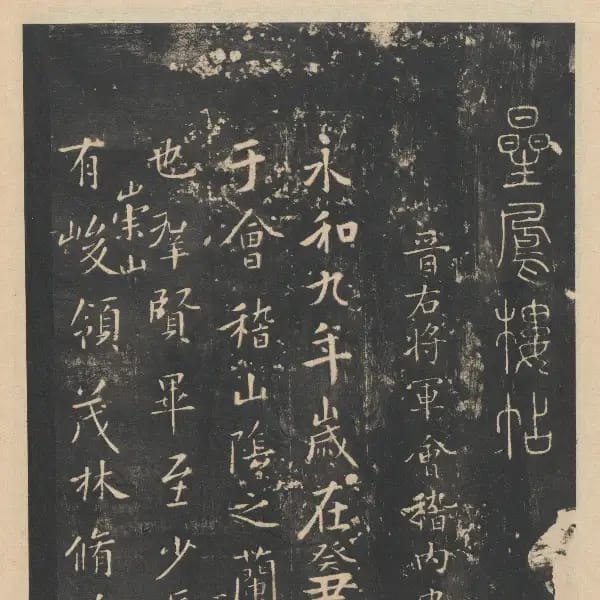 星鳳樓帖
晉右将軍會稽内
永和九年歲在癸丑
于會稽山陰之蘭
也羣賢畢至少長
有崇山峻領茂林脩